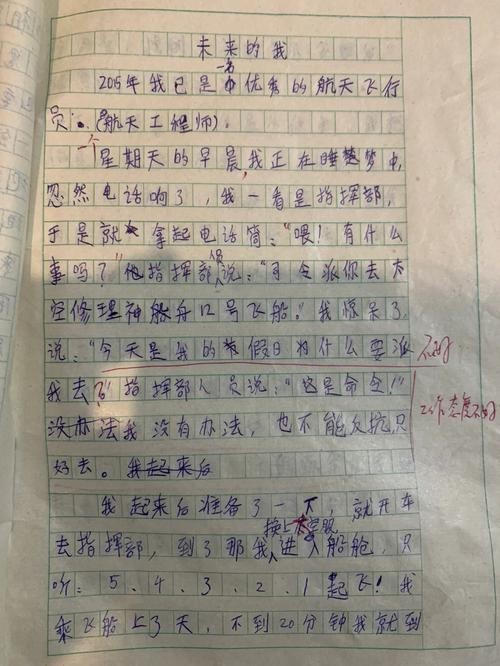 未来的我
2015年我已是一名优秀的航天飞行
员。(航天工程师)。
一个星期天的早晨,我正在睡梦中,
忽然电话响了,我一看是指挥部,
于是就拿起电话筒:“喂!有什么
事吗?”他指挥部人员说:“司令派你去太
空修理神船舟12号飞船。”我惊呆了
说:“今天是我的节假日为什么要派
我去?”指挥部人员说:“这是命令!”
没办法我没有办法,也不能反抗,只
好去。我起来后
不好
工作态度不好
我起来后准备了一下,就开车
去指挥部,到了那我换上太空服进入船舱,只
听:5.4.3.2.1起飞!我
乘飞船上了天,不到20分钟我就到